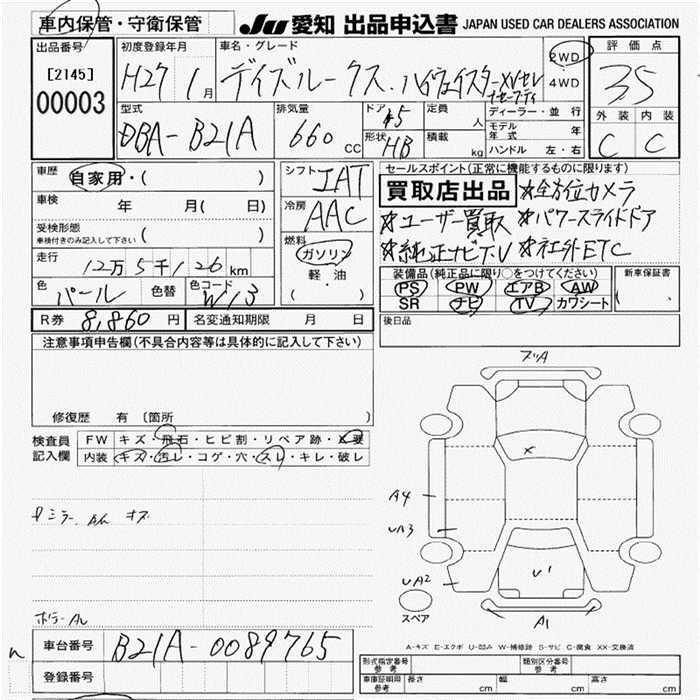 車内保管・守衛保管 JU 愛知 出品申込書 JAPAN USED CAR DEALERS ASSOCIATION
出品番号 初度登録年月 車名・グレード 2WD・4WD 評価点
[2145] 00003 H27 1月 デイズルークス・ハイウェイスター 3.5
型式 排気量 ドア 定員 ディーラー・並行 外装 内装
DBA-B21A 660 CC 5 人 モデル年式 年 C C
形状 HB 積載 kg ハンドル 左・右
車歴 自家用・( ) シフト IAT セールスポイント(正常に機能するものに限ります)
車検 年 月( 日) 冷房 AAC 買取店出品 ☆全方位カメラ
受検形態 車検付きのみ記入して下さい ( ) ☆ユーザー買取 ☆パワースライドドア
走行 12万5千126km 燃料 ガソリン 軽油 ( ・ ) ☆純正ナビTV ☆社外ETC
色 パール 色替 色コード W13 装備品(純正品に限り○をつけてください) 新車保証書
PS PW エアB AW
SR ナビ TV カワシート
R券 8,860円 名変通知期限 月 日 後日品
注意事項申告欄(不具合内容等は具体的に記入して下さい)
修復歴 有 〔箇所
検査員記入欄 FW キズ・飛石・ヒビ割・リペア跡・X要
内装 キズ・汚レ・コゲ・穴・スレ・キレ・破レ
A4
ミラー キズ
UA3
UA2
U1
A1
スペア
車台番号 B21A-0089765
登録番号
A-キズ E-エクボ U-凹み W-補修跡 S-サビ C-腐食 XX-交換済
形式指定番号 参考 類別区分番号 参考
車庫証明用 参考 長さ cm 幅 cm 高さ cm